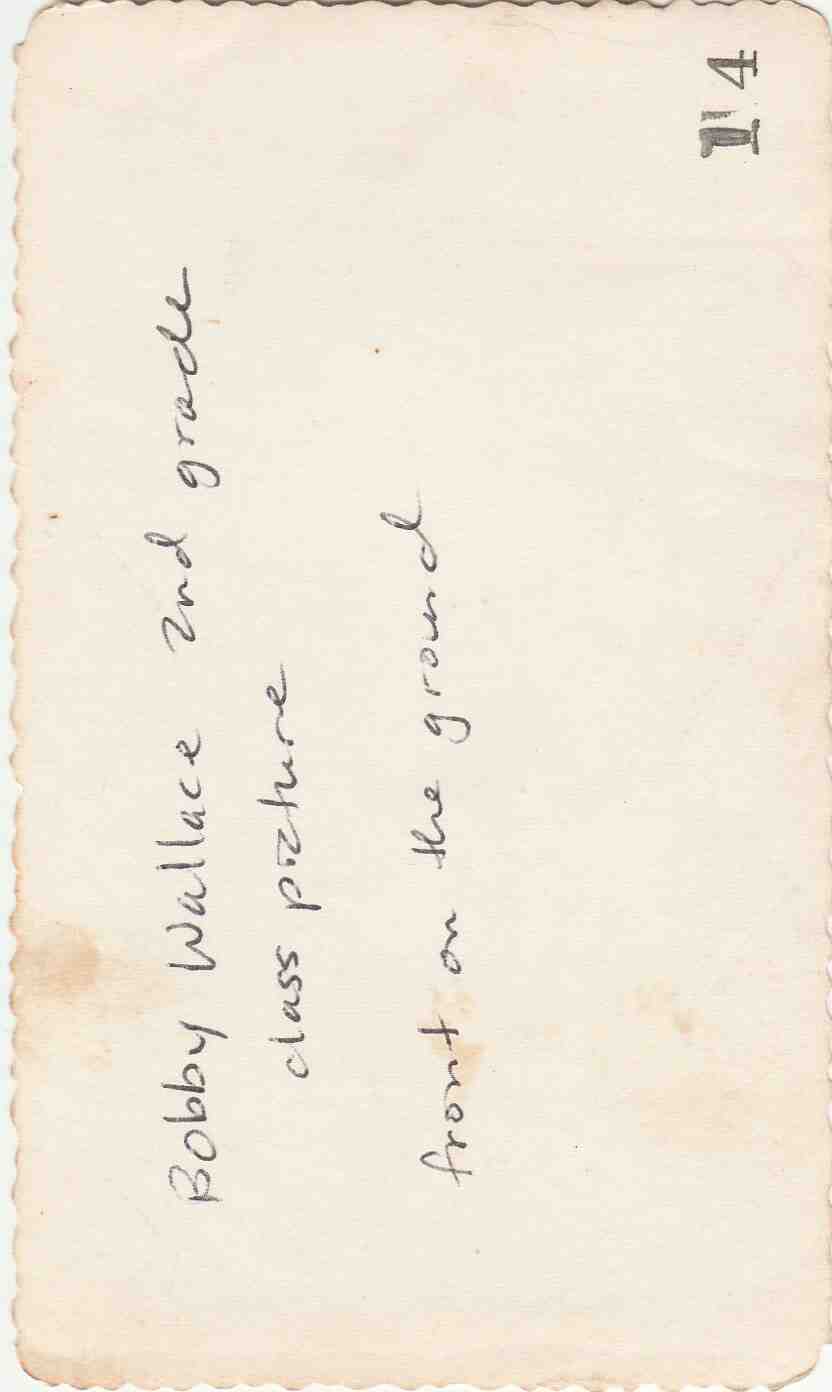 Bobby Wallace 2nd grade
class picture
front on the ground
114